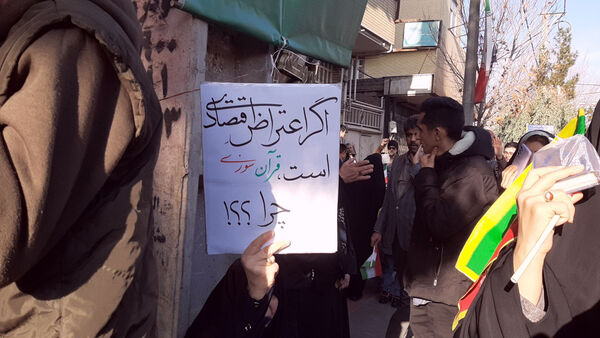 اگر اعتراض اقتصادی
است، قرآن سوزی
چرا ؟؟؟!